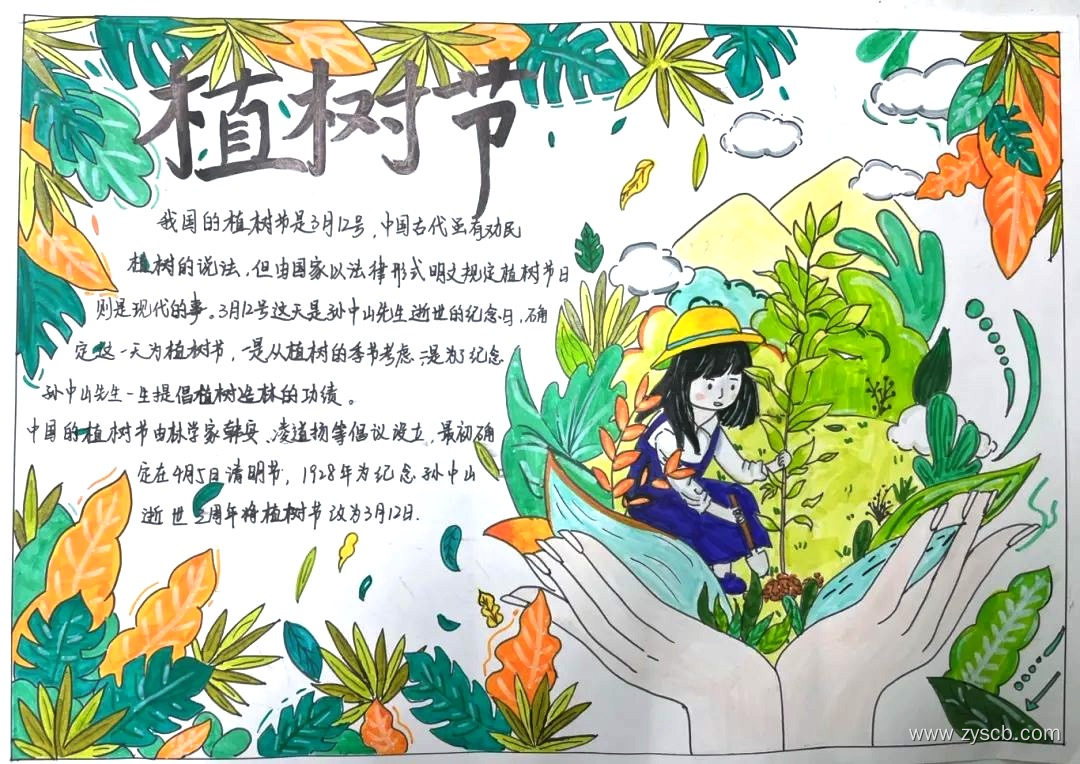 植树节
我国的植树节是3月12号，中国古代虽有劝民
植树的说法，但由国家以法律形式明文规定植树节日
则是现代的事。3月12号这天是孙中山先生逝世的纪念日，确
定这一天为植树节，一是从植树的季节考虑，二是为了纪念
孙中山先生一生提倡植树造林的功绩。
中国的植树节由林学家韩安、凌道扬等倡议设立，最初确
定在4月5日清明节，1928年为纪念孙中山
逝世三周年将植树节改为3月12日.
www.zyscb.com